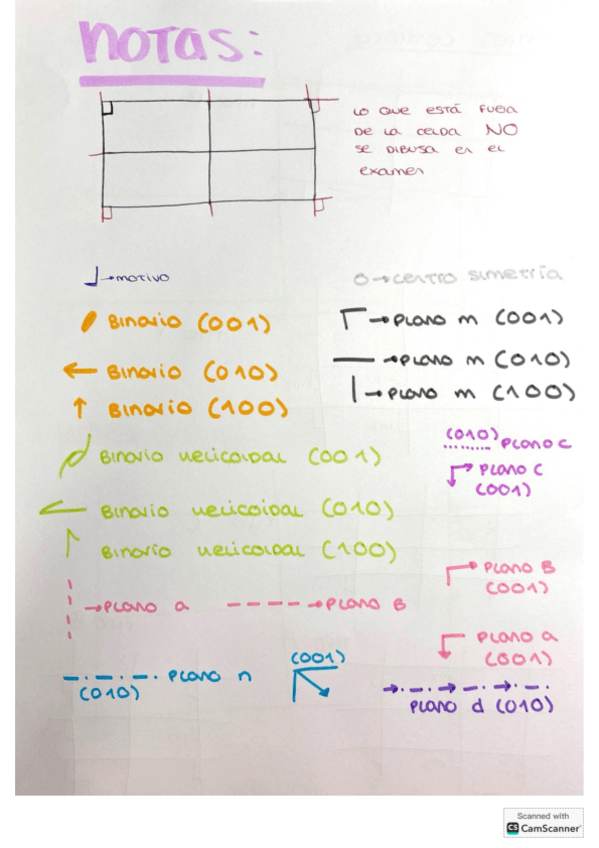 NOTAS:
LO QUE ESTÁ FUERA
DE LA CELDA NO
SE DIBUJA EN EL
EXAMEN
→MOTIVO
→CENTRO SIMETRÍA
BINARIO (001)
→PLANO m (001)
BINARIO (010)
→PLANO m (010)
BINARIO (100)
→PLANO m (100)
(010) PLANO C
BINARIO HELICOIDAL (001)
PLANO C
(001)
BINARIO HELICOIDAL (010)
BINARIO HELICOIDAL (100)
PLANO B
(001)
→PLANO a
→PLANO B
PLANO a
(001)
PLANO n
(010)
(001)
PLANO d (010)
Scanned with
CS CamScanner